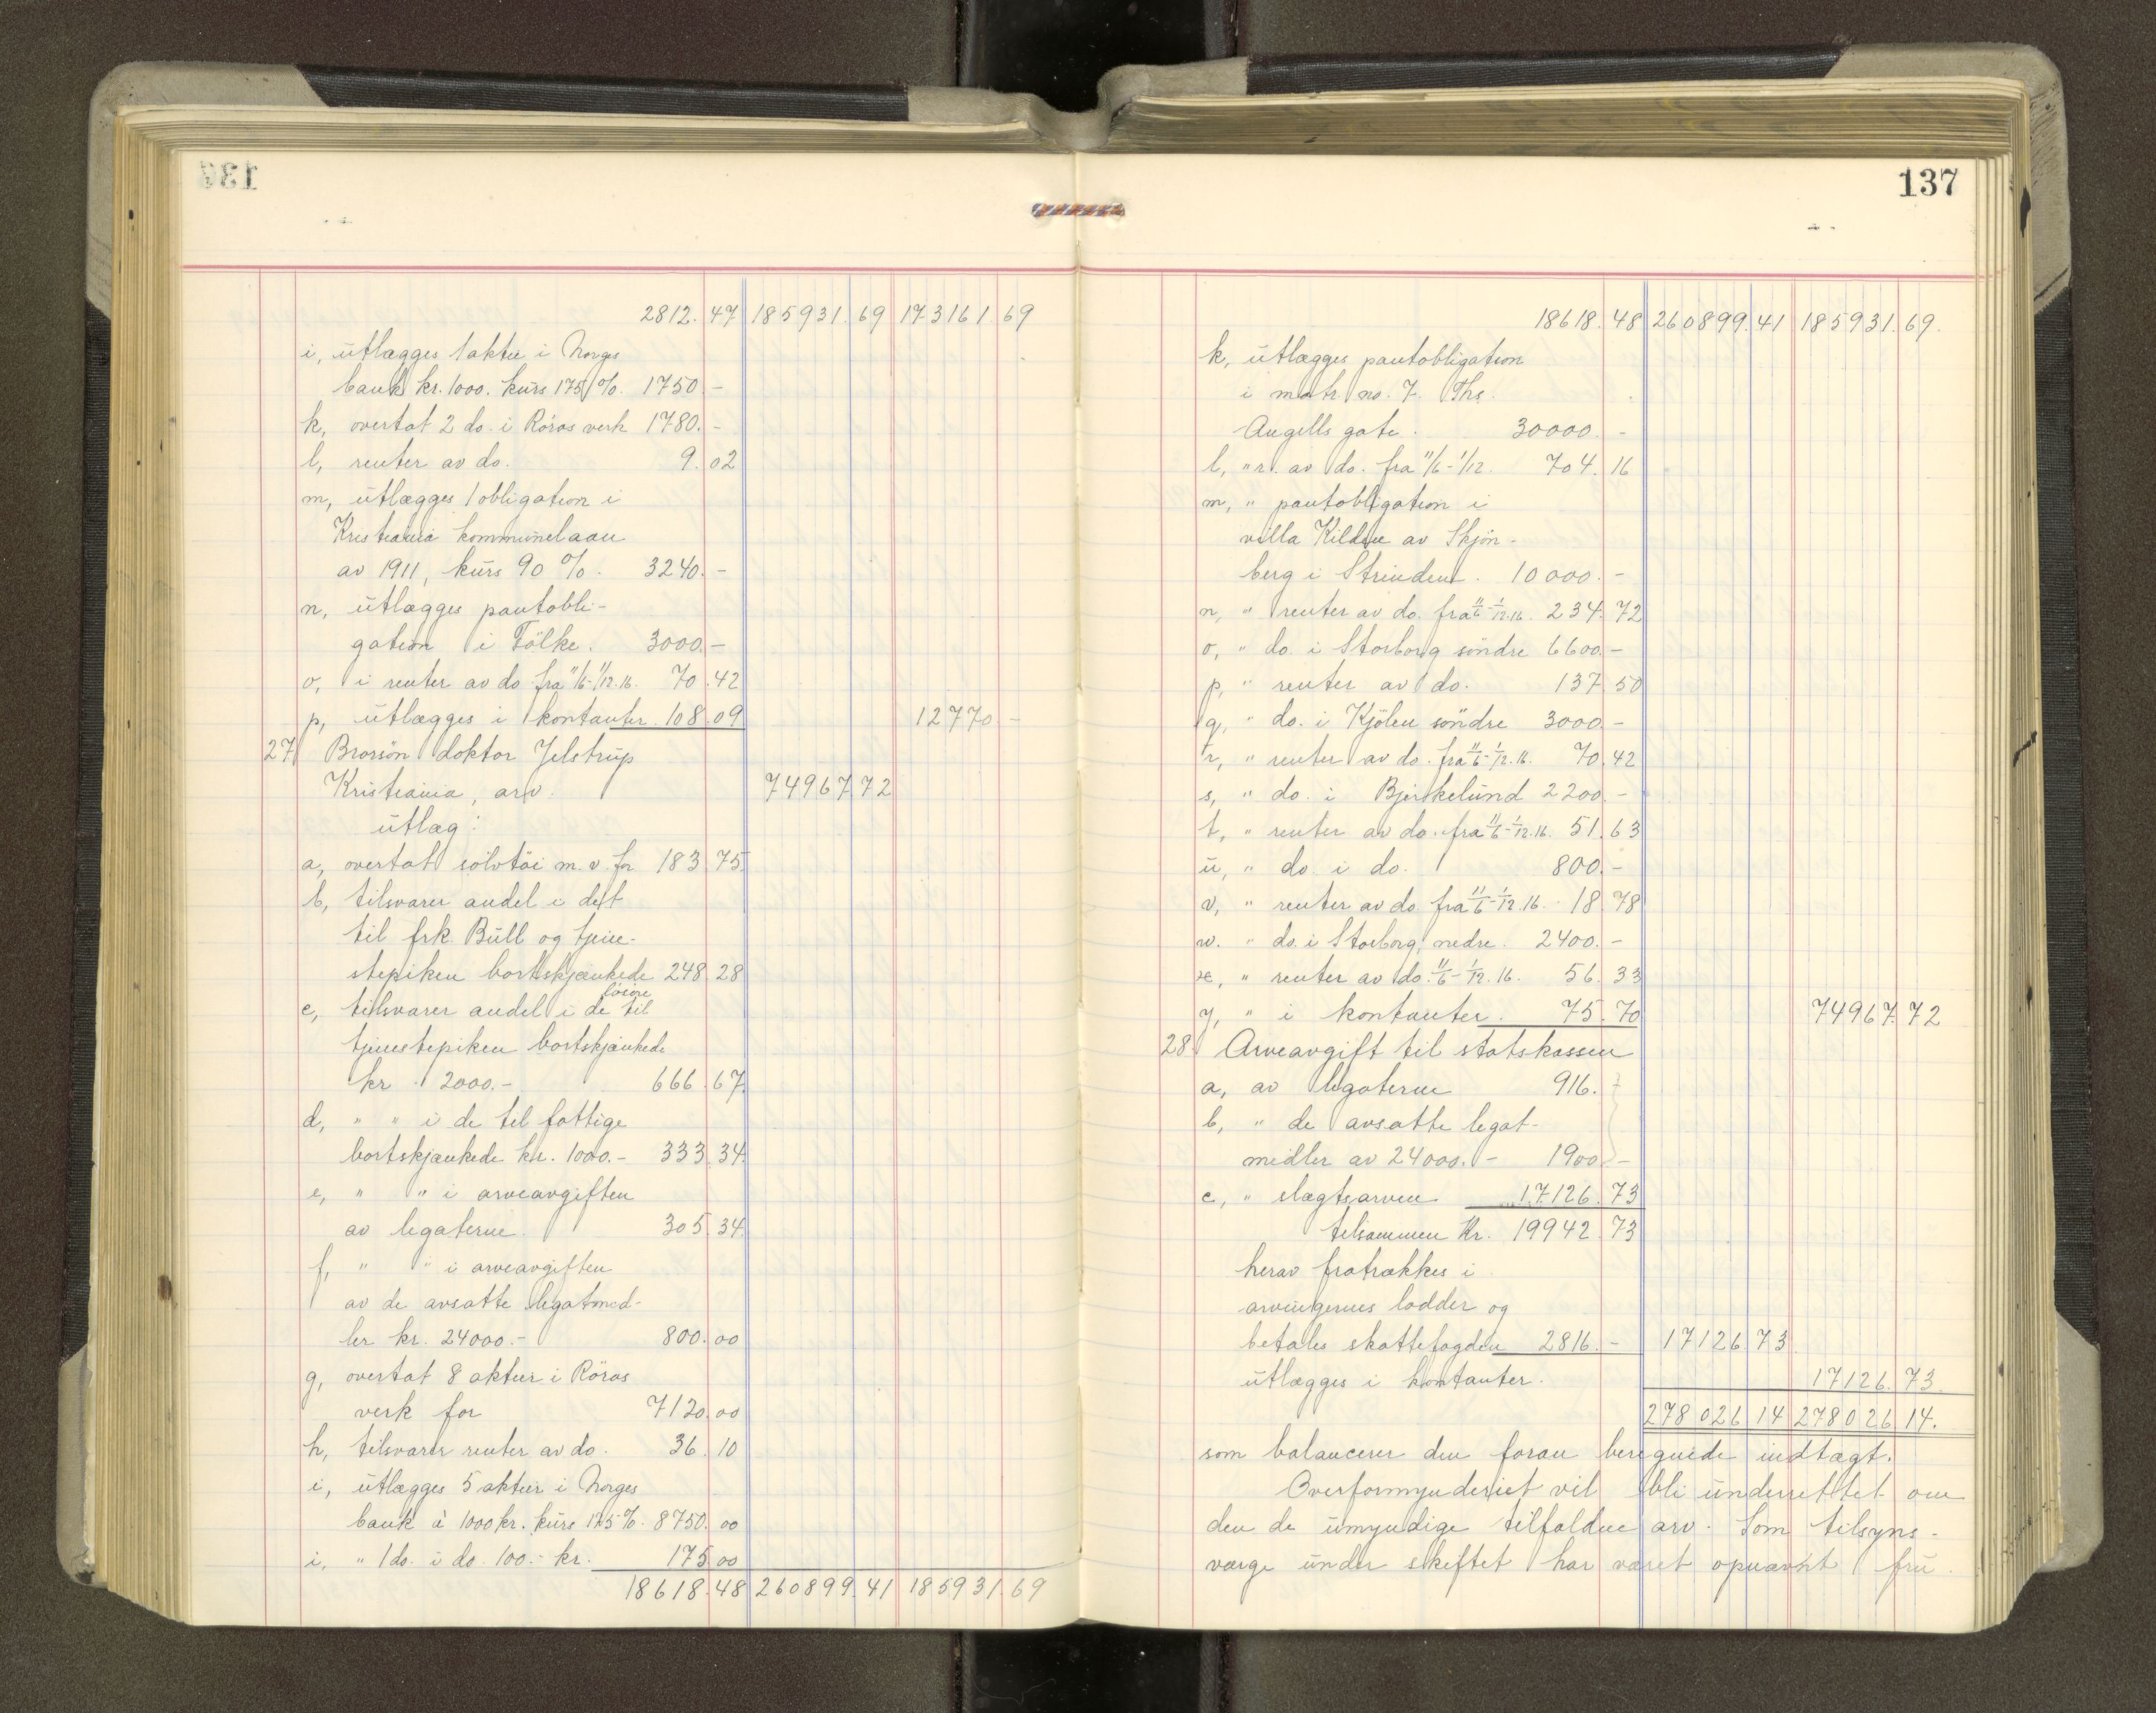 2812. 47 185931. 69 173161. 69
i, utlægges 1 aktie i Norges
bank kr. 1000. kurs 175 %. 1750. -
k, overtat 2 do. i Röros verk 1780. -
l, renter av do. 9. 02
m, utlægges 1 obligation i
Kristiania kommunelaan
av 1911, kurs 90 %. 3240. -
n, utlægges pantobli-
gation i Fölke. 3000. -
o, i renter av do fra 11/6-1/12.16. 70. 42
p, utlægges i kontanter 108. 09 12770 -
27 Brorsön doktor Jelstrup
Kristiania, arv. 74967 72
utlæg:
a, overtat sölvtöi m. v. for 183 75.
b, tilsvarer andel i det
til frk. Bull og tjene-
stepiken bortskjænkede 248 28
c, tilsvarer andel i de løsøre til
tjenestepiken bortskjænkede
kr. 2000.- 666. 67.
d, " " i de til fattige
bortskjænkede kr. 1000.- 333 34.
e, " " i arveavgiften
av legaterne. 305 34.
f, " " i arveavgiften
av de avsatte legatmid-
ler kr. 24000.- 800. 00
g, overtat 8 aktier i Röros
verk for 7120. 00
h, tilsvarer renter av do. 36. 10
i, utlægges 5 aktier i Norges
bank à 1000 kr. kurs 175 %. 8750. 00
i, " 1 do. i do. 100.- kr. 175 00
18618. 48 260899. 41 185931. 69
137
18618. 48 260899. 41 185931. 69.
k, utlægges pantobligation
i matr. no. 7. Ths.
Angells gate. 30000. -
l, " r. av do. fra 11/6-1/12. 704. 16
m, " pantobligation i
villa Kilden av Skjön-
berg i Strinden. 10000. -
n, " renter av do. fra 11/6-1/12.16. 234. 72
o, " do. i Storborg söndre 6600. -
p, " renter av do. 137 50
q, " do. i Kjölen söndre 3000. -
r, " renter av do. fra 11/6-1/12.16. 70. 42
s, " do. i Bjerkelund 2200. -
t, " renter av do. fra 11/6-1/12.16. 51. 63
u, " do. i do. 800. -
v, " renter av do. fra 11/6-1/12.16. 18 78
w. " do. i Storborg, nedre. 2400. -
x, " renter av do. 11/6-1/12.16. 56. 33
y, " i kontanter. 75. 70 74967. 72
28. Arveavgift til statskassen
a, av legaterne 916. -
b, " de avsatte legat-
midler av 24000. - 1900. -
c, " slægtsarven 17126. 73
tilsammen Kr. 19942. 73
herav fratrækkes i
arvingernes lodder og
betales skattefogden 2816. - 17126 73
utlægges i kontanter. 17126. 73.
278026 14 278026 14.
som balancerer den foran beregnede indtægt.
Overformynderiet vil bli underrettet om
den de umyndige tilfaldne arv. Som tilsyns-
værge under skiftet har været opnævnt fru